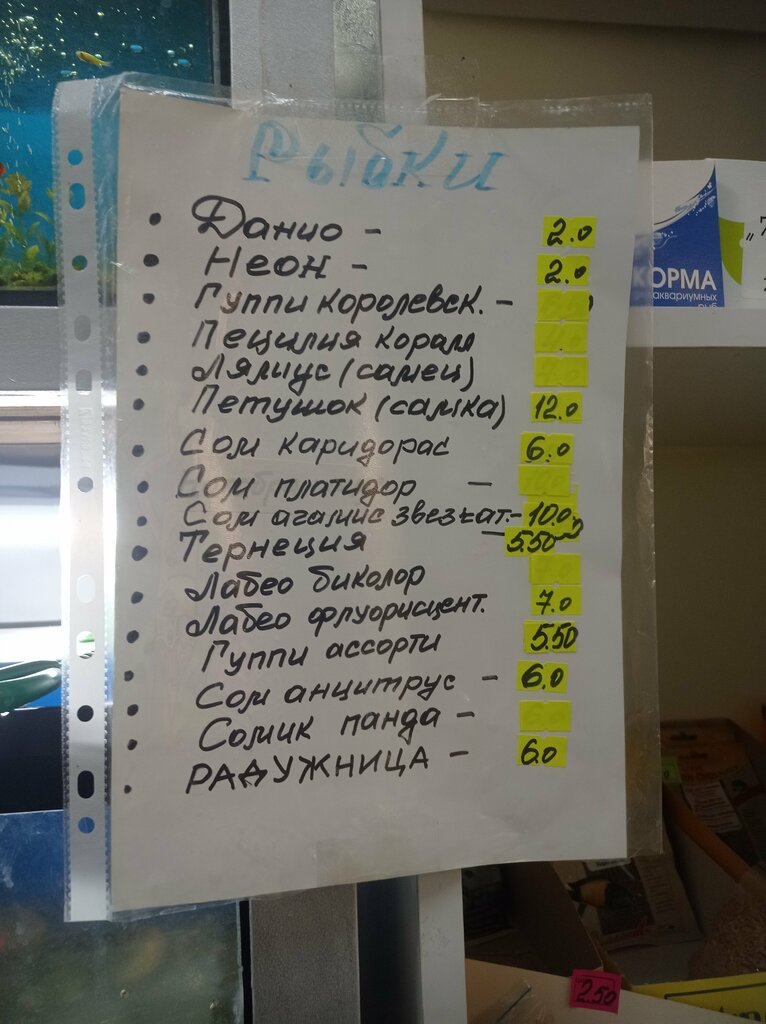 Рыбки
Данио - 2.0
Неон - 2.0
Гуппи королевск. -
Пецилия корал
Лялиус (самец)
Петушок (самка) 12.0
Сом каридорас 6.0
Сом платидор -
Сом агамис звездчат. - 10.0
Тернеция - 5.50
Лабео биколор
Лабео флуорисцент. 7.0
Гуппи ассорти 5.50
Сом анцитрус - 6.0
Сомик панда -
РАДУЖНИЦА - 6.0
КОРМА
аквариумных
рыб
2.50